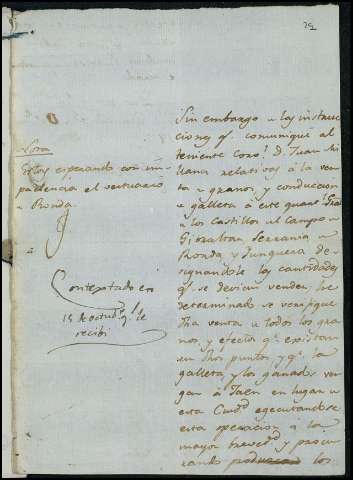 29
Nota
Estoy esperando con im
paciencia el vestuario
a Ronda.
Contextado en
15 de octub.e q.l le
recibi
Sin embargo a las instruc
ciones q.e comuniqué al
teniente Coro.l D. Juan Mi
llana relativas à la ven
ta a granos, y conduccion
a galleta à este quart.l Gral
a los Castillos al Campo a
Gibraltar, Serrania a
Ronda y Junquera de
signandole las cantidades
q.e se devian vender, he
determinado se verifique
dha venta a todos los gra
nos, y efectos q.e existan
en dhos puntos, y q.e la
galleta, y los ganados ven
gan à Jaen en lugar a
esta Ciud.d egecutandose
esta operacion à la
mayor breved.d y procu
rando los